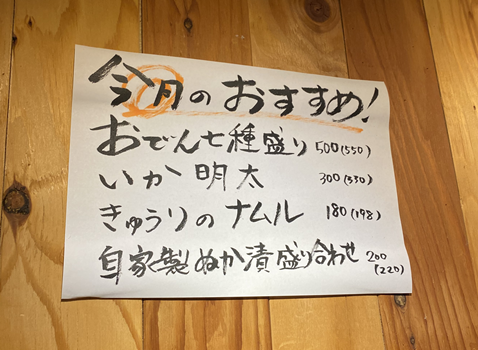 今月のおすすめ!
おでん七種盛り 500(550)
いか明太 300(330)
きゅうりのナムル 180(198)
自家製ぬか漬盛り合わせ 200(220)